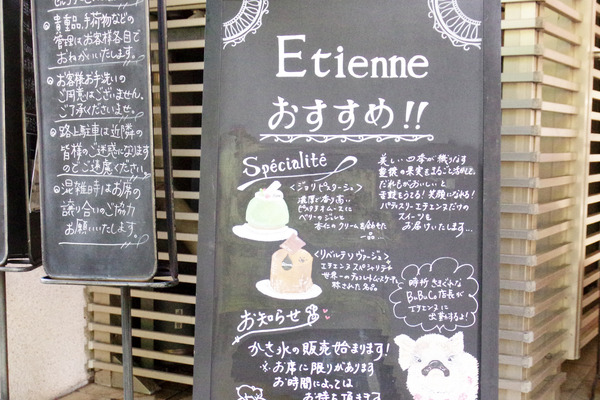 ◎貴重品、手荷物などの
管理はお客様各自で
おねがいいたします。
◎お客様お手洗いの
ご用意はございません。
ご了承くださいませ。
◎路上駐車は近隣の
皆様のご迷惑になります
のでご遠慮ください。
◎混雑時はお席の
譲り合いのご協力
お願いいたします。
Etienne
おすすめ!!
Spécialité
<ジョリピスターシュ>
濃厚で香り高い
ピスタチオムースに
ベリーのジュレと
杏仁のクリームを合わせた
一品…
<リベルテソヴァージュ>
エチエンヌスペシャリテ
世界一のチョコレートムースケーキと
称された名品
美しい四季が織りなす
重観の果実をまるごと活かして、
だれもがおいしいと
舌鼓をうてる!笑顔になれる!
パティスリーエチエンヌだけの
スイーツを
お届けいたします…
お知らせ
かき氷の販売始まります!
※お席に限りがあります
お時間によっては
お待ち頂きます
時折きまぐれな
BuBuCo店長が
エチエンヌに
出勤するよ!